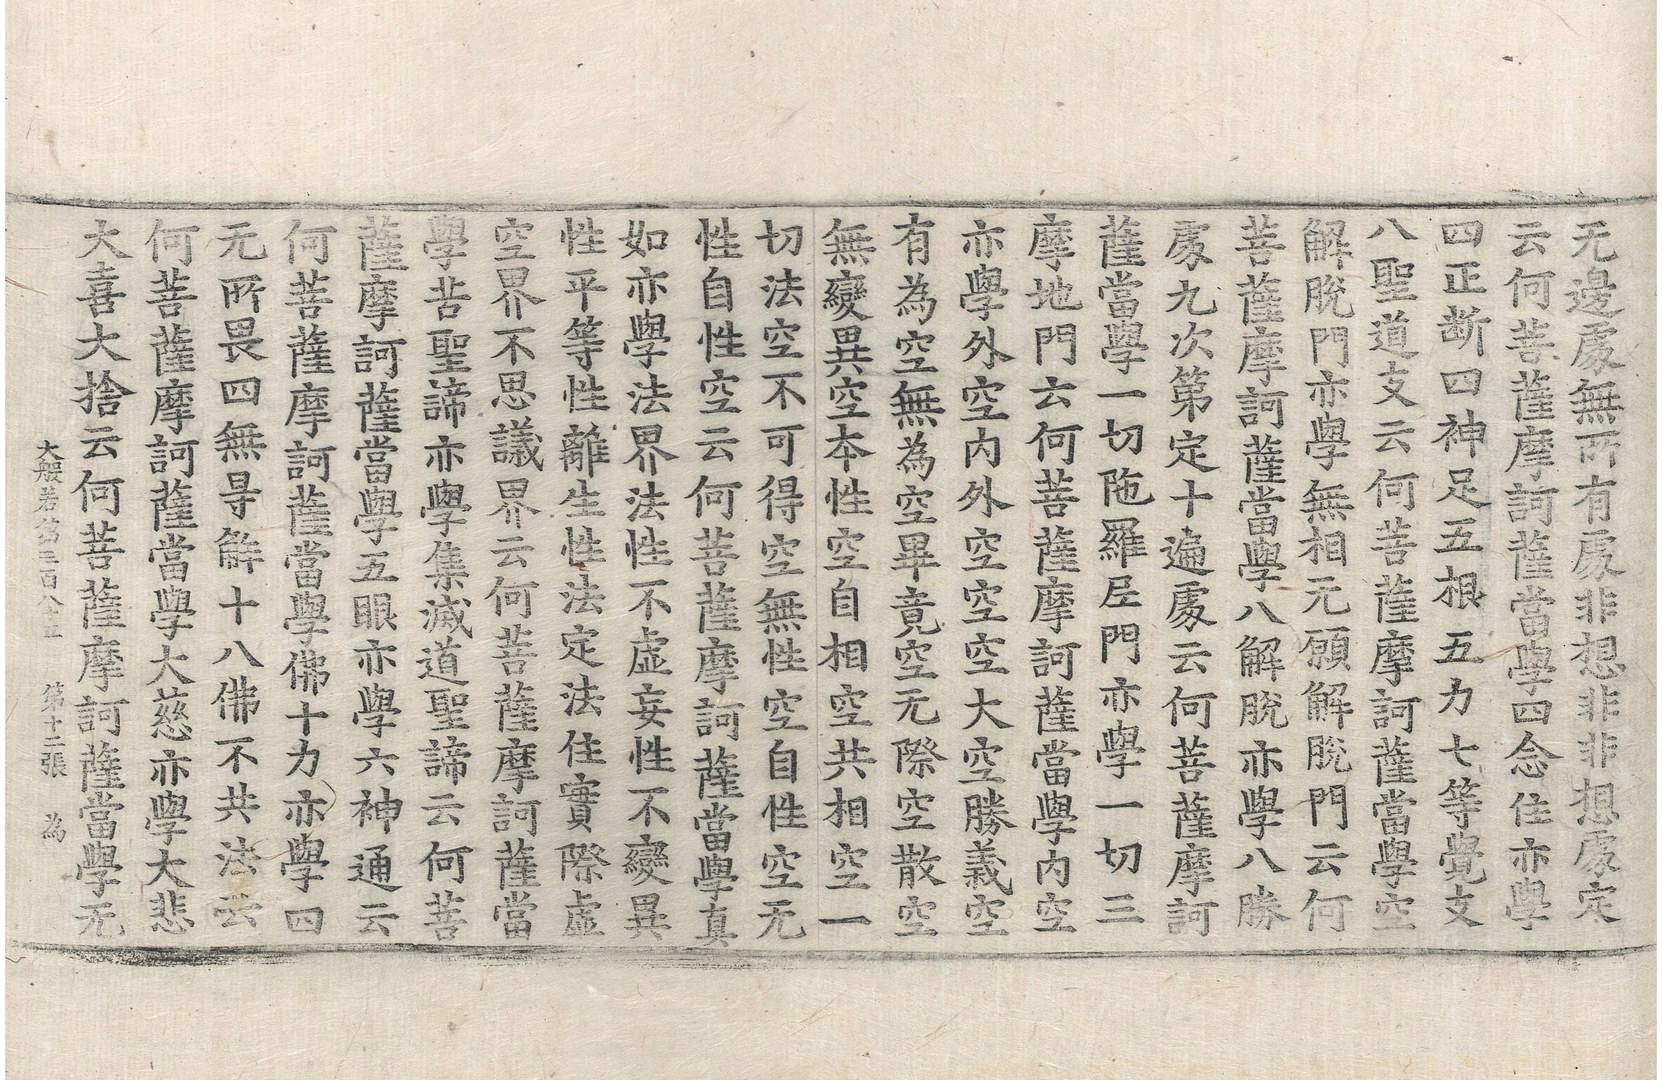 无邊處無所有處非想非非想處定
云何菩薩摩訶薩當學四念住亦學
四正断四神足五根五力七等覺支
八聖道支云何菩薩摩訶薩當學空
解脫門亦學無相无願解脫門云何
菩薩摩訶薩當學八解脫亦學八勝
處九次第定十遍處云何菩薩摩訶
薩當學一切陁羅尼門亦學一切三
摩地門云何菩薩摩訶薩當學内空
亦學外空内外空空空大空勝義空
有為空無為空畢竟空无際空散空
無變異空本性空自相空共相空一
切法空不可得空無性空自性空无
性自性空云何菩薩摩訶薩當學真
如亦學法界法性不虛妄性不變異
性平等性離生性法定法住實際虛
空界不思議界云何菩薩摩訶薩當
學苦聖諦亦學集滅道聖諦云何菩
薩摩訶薩當學五眼亦學六神通云
何菩薩摩訶薩當學佛十力亦學四
无所畏四無㝵解十八佛不共法云
何菩薩摩訶薩當學大慈亦學大悲
大喜大捨云何菩薩摩訶薩當學无
大般若第三百八十五 第十二張 為